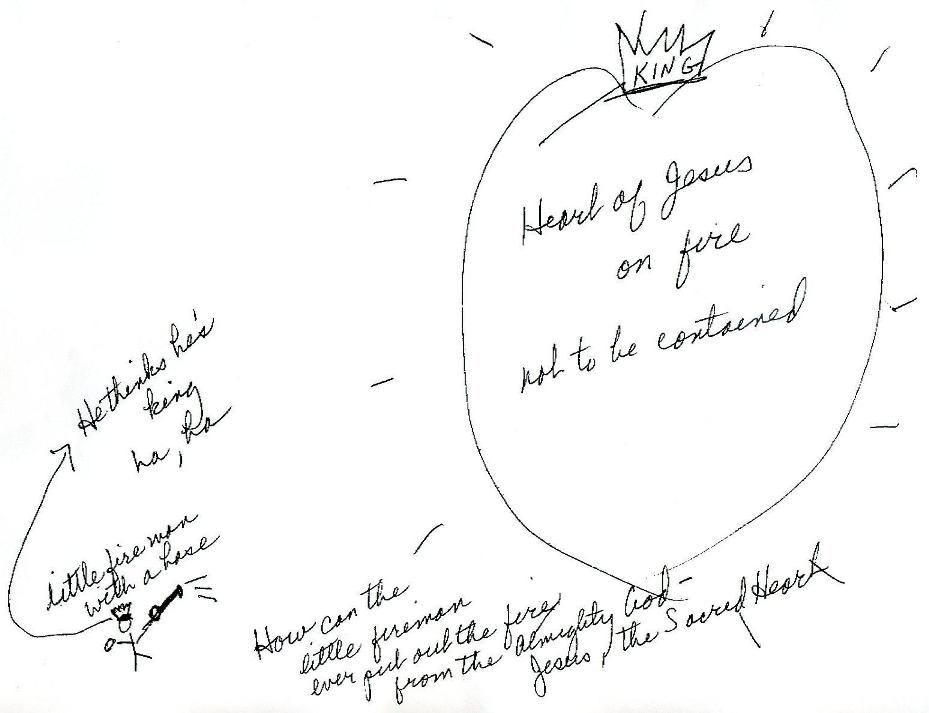 KING
Heart of Jesus
on fire
not to be contained
He thinks he's
king
ha, ha
little fireman
with a hose
How can the
little fireman
ever put out the fire
from the almighty God-
Jesus, the Sacred Heart